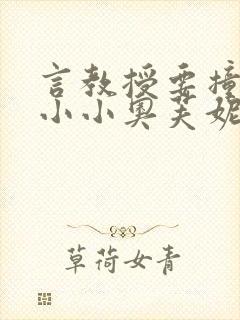 言教授要撞
小小奥芙妮
草荷女青